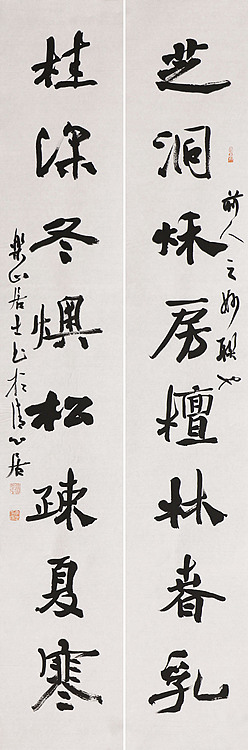 芝洞秋房檀林春乳
前人之妙聯也
桂深冬燠松疎夏寒
樂山居士書於清心居